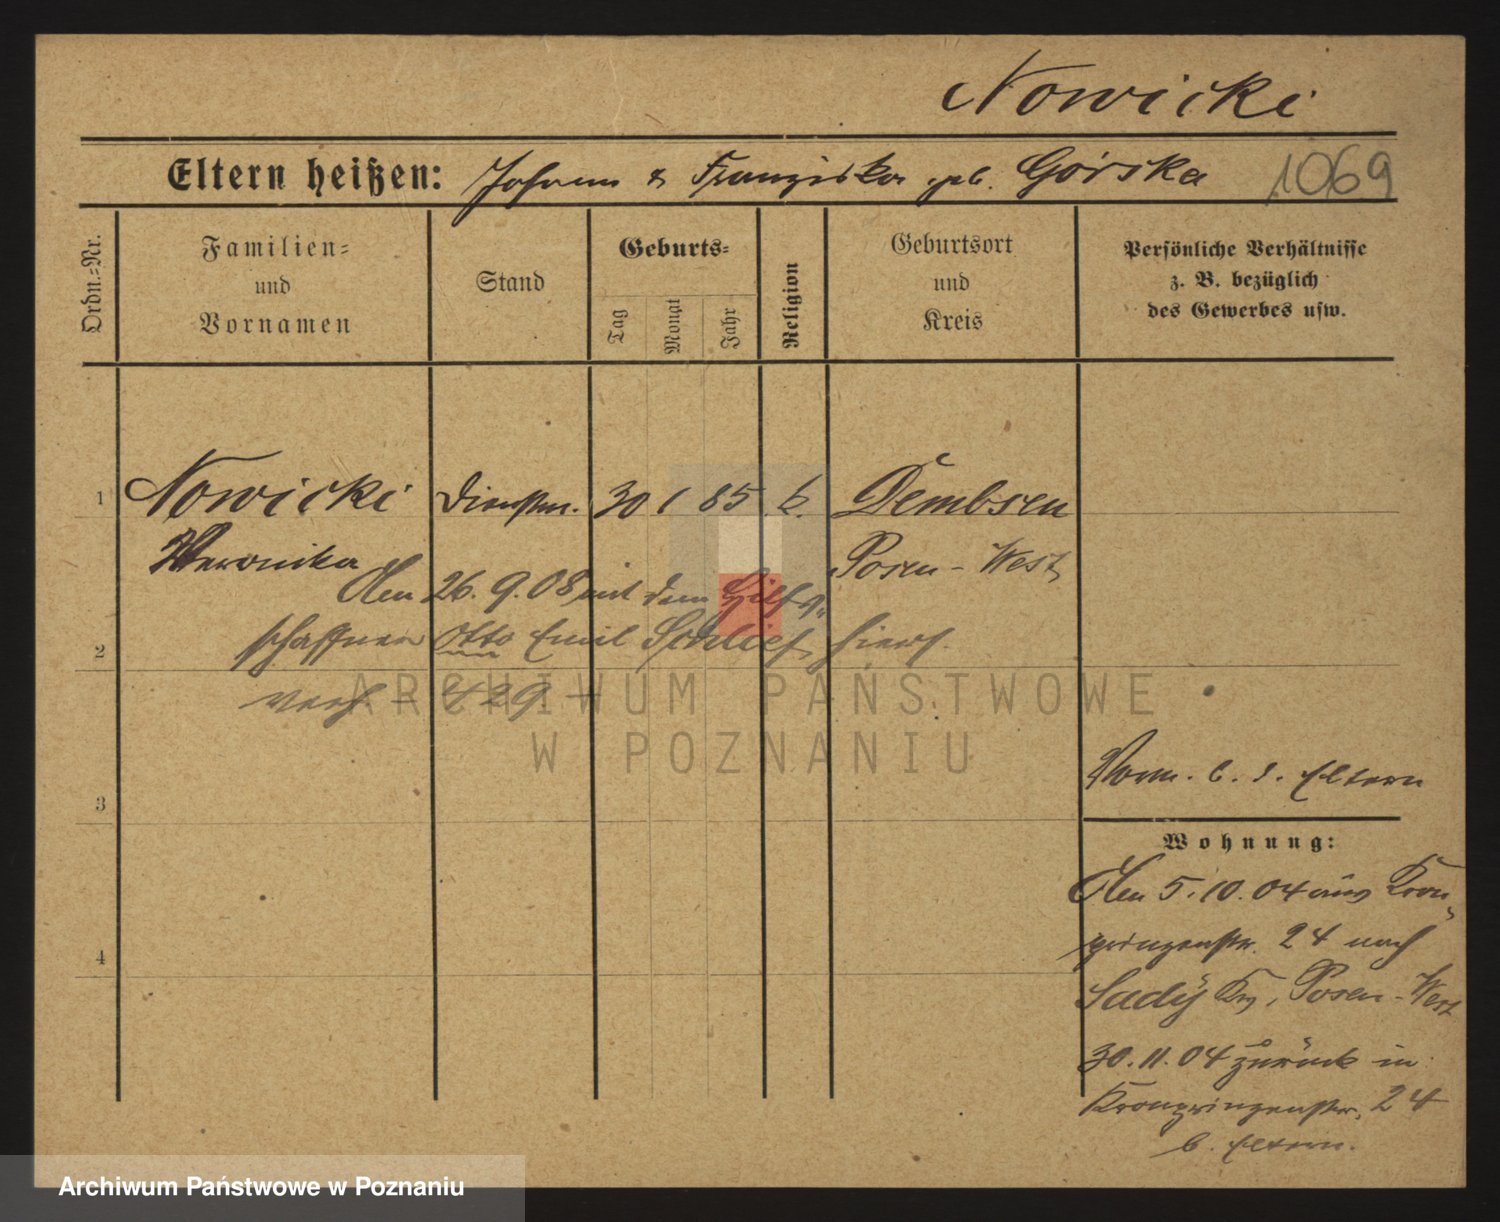 Nowicki
Eltern heißen: Johann & Franziska geb. Górska 1069
Ordn.-Nr.
Familien-
und
Vornamen
Stand
Geburts-
Tag
Monat
Jahr
Religion
Geburtsort
und
Kreis
Persönliche Verhältnisse
z. B. bezüglich
des Gewerbes usw.
1 Nowicki Dienstm. 30 1 85 k. Dembsen
Veronika Posen-West
Den 26. 9. 08 mit dem Hilfs-
schaffner Otto Emil Schlief hiers.
2
verh - 429 -
ARCHIWUM PAŃSTWOWE
W POZNANIU
Vorm. b. d. Eltern
3
Wohnung:
Den 5. 10. 04 aus Kron-
prinzenstr. 24 nach
4
Sady Krs, Posen-West
30. 11. 04 zurück in
Kronprinzenstr. 24
b. Eltern.
Archiwum Państwowe w Poznaniu